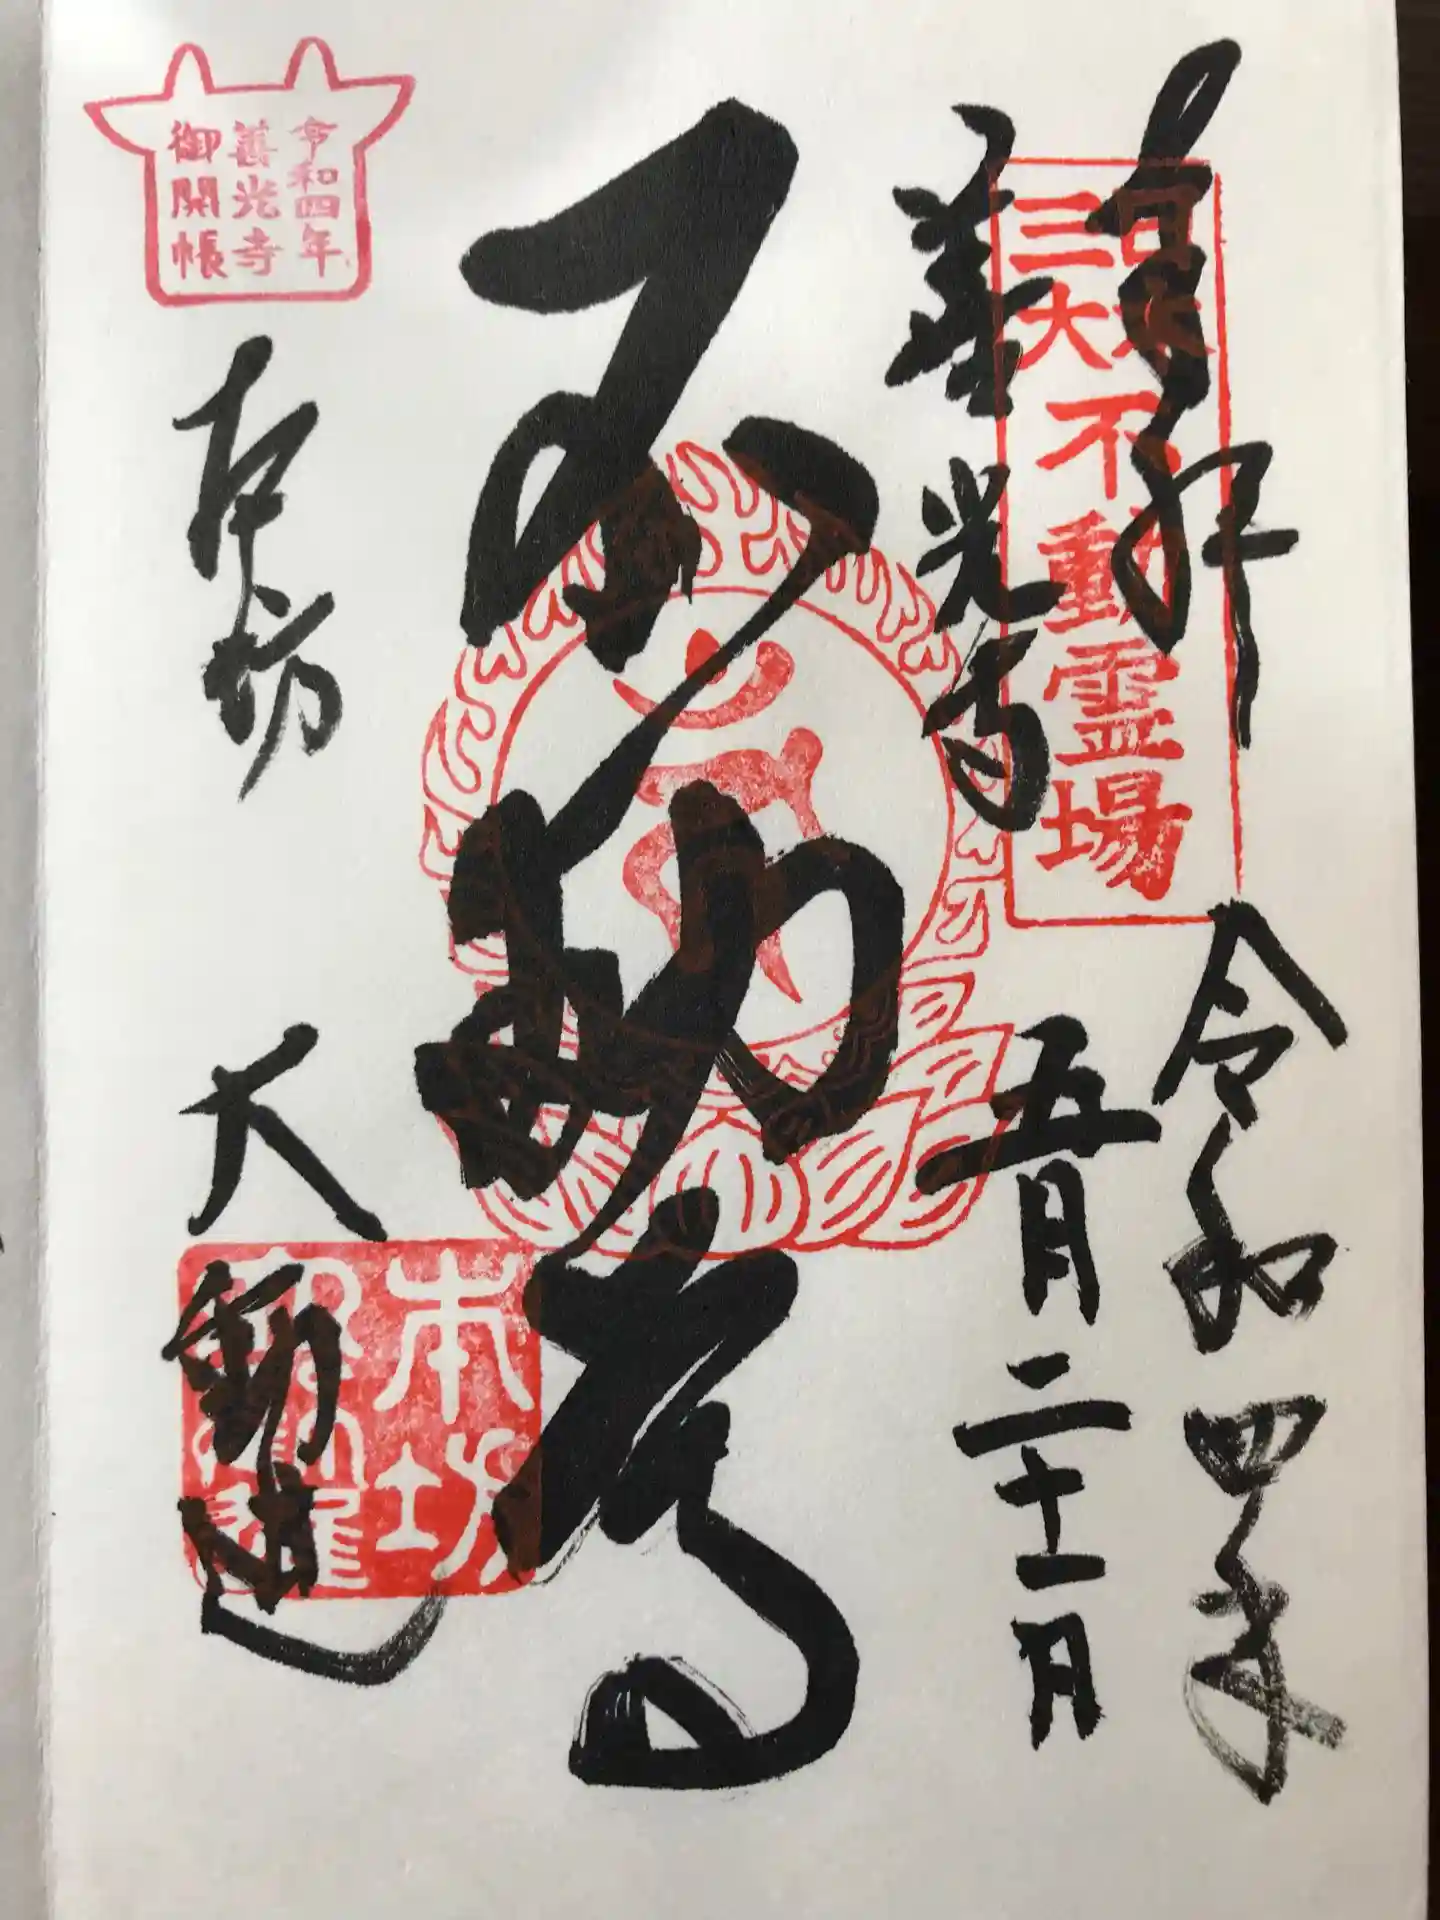 奉拝
令和四年
日本
三大
不動霊場
善光寺
五月二十一日
不動尊
令和四年
善光寺
御開帳
本坊
大勧進
本坊